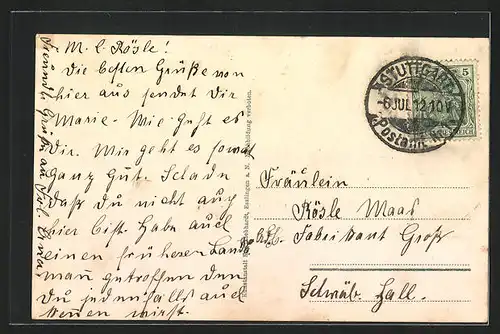 M. l. Rösle!
Die besten Grüße von
hier aus sendet dir
Marie. Wie geht es
Dir. Mir geht es soweit
ganz gut. Schade
daß du nicht auch
hier bist. Habe auch
einen früheren Lands
mann getroffen den
du jedenfalls auch
kennen wirst.
STUTTGART
-6.JUL.12.10V
Postamt
5
Fräulein
Rösle Maas
Adr. Fabrikant Groß
Schwäb. Hall.
Eßlingen a. N. Nachbildung verboten.